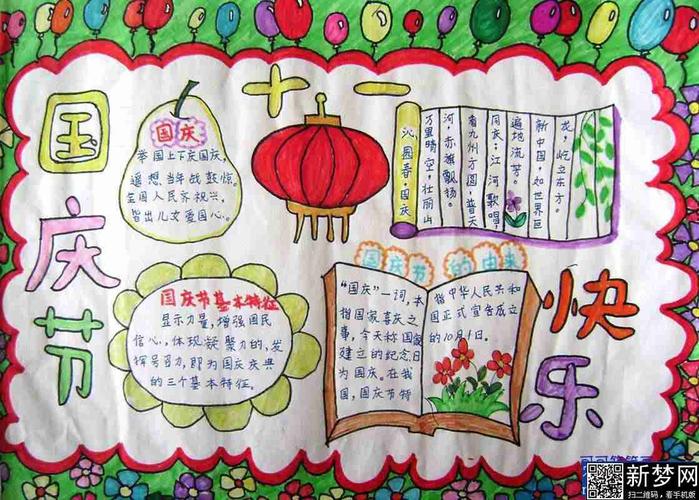 国庆节
十一
国庆
举国上下庆国庆，
遥想当年战鼓惊。
全国人民齐祝兴，
皆出儿女爱国心。
沁园春·国庆
万里晴空，壮丽山
河，赤旗飘扬。
看九州方圆，普天
同庆；江河歌唱，
遍地流芳。
新中国，如世界巨
龙，屹立东方。
国庆节基本特征
显示力量，增强国民
信心，体现凝聚力的，发
挥号召力，即为国庆庆典
的三个基本特征。
国庆节的由来
“国庆”一词，本
指国家喜庆之
事，今天称国家
建立的纪念日
为国庆。在我
国，国庆节特
指中华人民共和
国正式宣告成立
的10月1日。
快乐
新梦网
扫二维码，看手机版